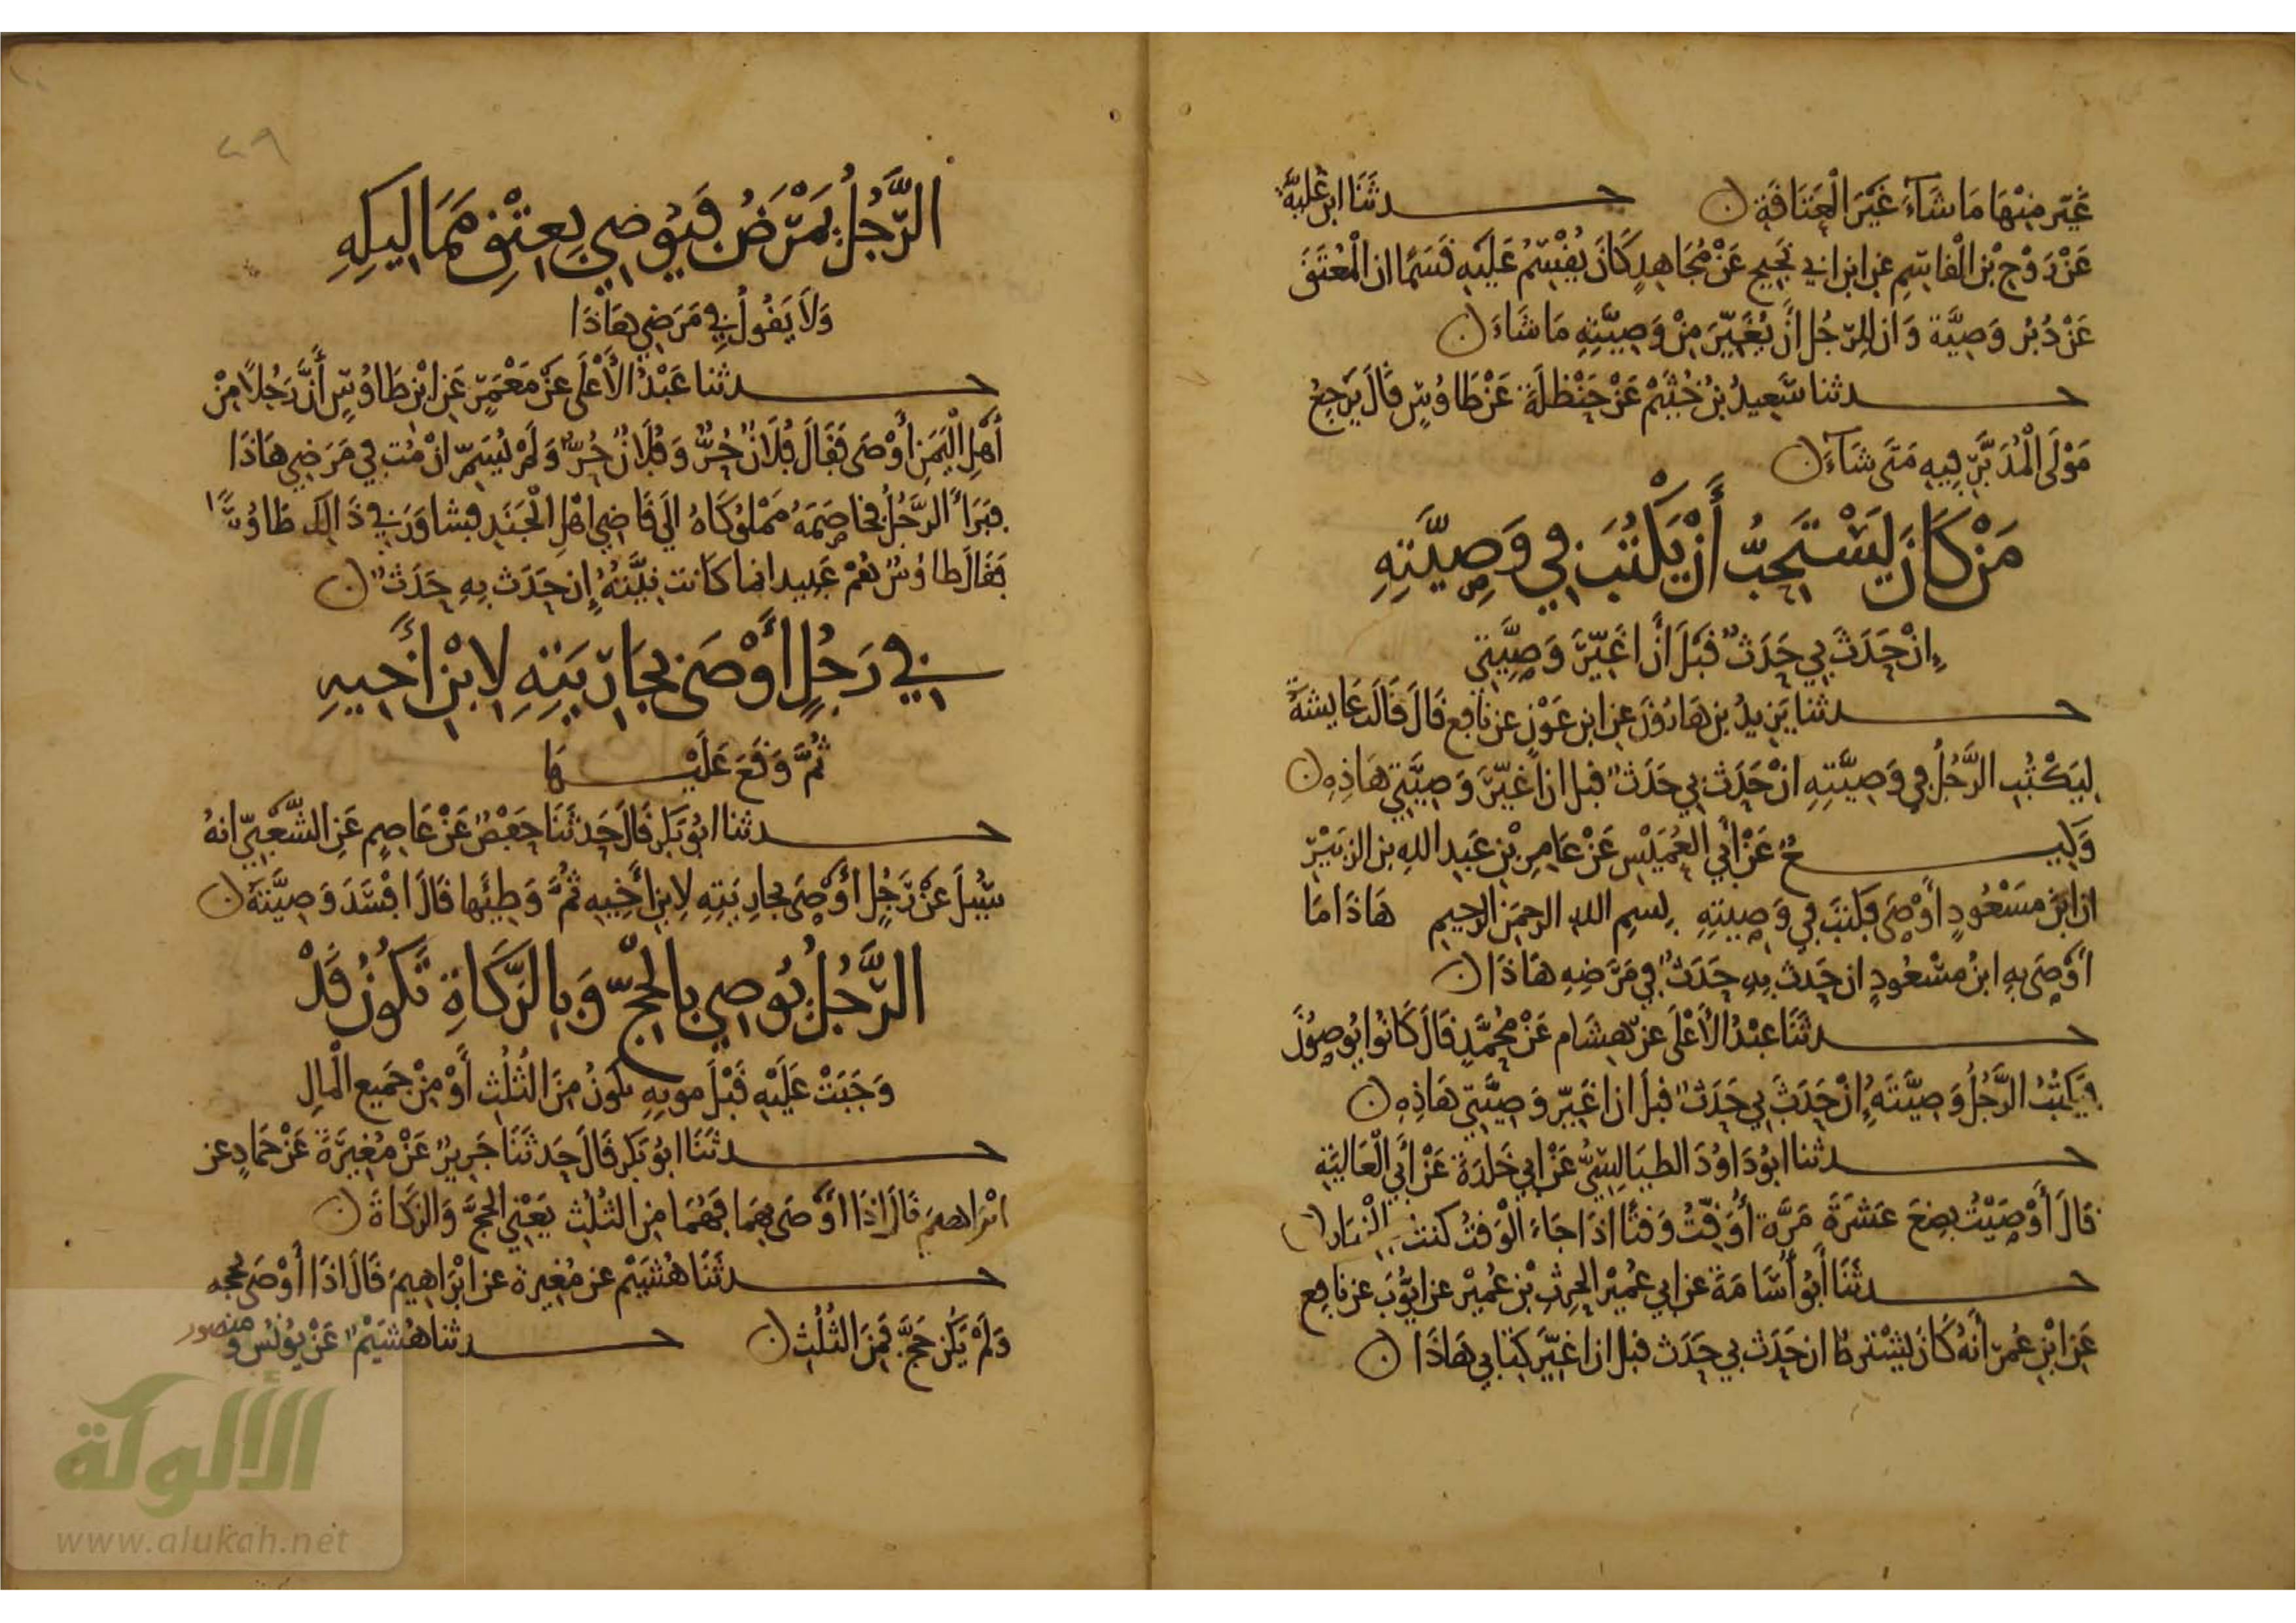 غَيّر مِنْهَا مَا شَآءَ غَيْرَ الْعَتَاقَةِ ۝ حـدثَنَا ابن عُلَيَّةَ
عَنْ رَوْحِ بْنِ الْقَاسِمِ عَن ابن ابي نَجِيحٍ عَنْ مُجَاهِدٍ كَانَ يُقْسِمُ عَلَيْهِ قَسَمًا ان الْمُعْتَقَ
عَنْ دُبُرٍ وَصِيَّة وَانّ لِلرّجُلِ أَنْ يُغَيِّرَ مِنْ وَصِيَّتِهِ مَا شَاءَ ۝
حـدثنا سَعِيدُ بْنُ خُثَيْمٍ عَنْ حَنْظَلَةَ عَنْ طَاوُسٍ قَالَ يَرْجِعُ
مَوْلَى الْمُدَبَّرِ فِيهِ مَتَى شَآءَ ۝
مَنْ كَانَ يَسْتَحِبُّ أَنْ يَكْتُبَ فِي وَصِيَّتِهِ
إِنْ حَدَثَ بِي حَدَثٌ قَبْلَ أَنْ اغَيِّرَ وَصِيَّتِي
حـدثنا يَزِيدُ بن هَارُونَ عن ابن عَوْنٍ عن نافِع قَالَ قَالَت عَايشَةُ
لِيَكْتُبِ الرَّجُلُ فِي وَصِيَّتِهِ انْ حَدَثَ بِي حَدَثٌ قبل ان اغَيِّرَ وَصِيَّتِي هَاذِهِ ۝
وَكِيـعٌ عَنْ أَبِي الْعُمَيْسِ عَنْ عَامِرِ بْنِ عَبدِ اللهِ بن الزبَيْرِ
ان ابْنَ مَسْعُودٍ أَوْصَى فكَتَبَ فِي وَصِيتِهِ بِسْمِ اللهِ الرحمَنِ الرحِيمِ هَاذَا مَا
أَوْصَى بِهِ ابنُ مسْعُودٍ ان حَدثَ بِهِ حَدَثٌ فِي مَرَضِهِ هَاذَا ۝
حـدثَنَا عبْدُ الأَعْلَى عن هِشَام عَنْ مُحَمَّدٍ قَالَ كَانُوا يُوصُونَ
فيَكْتُبُ الرَّجُلُ وَصِيَّتَهُ إِنْ حَدَثَ بِي حَدَثٌ قبل ان اغَيّر وَصِيَّتِي هَاذِهِ ۝
حـدثنا ابُو دَاوُدَ الطيَالِسِيُّ عَنْ ابي خَلدَةَ عَنْ أَبِي الْعَالِيَةِ
قالَ أَوْصَيْتُ بِضعَ عَشرَةَ مَرَّة أُوَقِّتُ وَقتًا اذَا جَاءَ الْوَقتُ كنت بالْخِيَارِ ۝
حـدثَنَا أَبُو أُسَامَةَ عن ابي عُمَيْر الحٰرِثِ بْنِ عُمَيْر عن ايّوُبَ عن نافِع
عَن ابْنِ عُمر أَنّهُ كَانَ يشْترِطُ ان حَدَث بِي حَدَث قبل ان اغيّرَ كِتَابِي هَاذَا ۝
الرَّجُلُ يَمْرَضُ فَيُوصِي بِعِتْقِ مَمَالِيكِهِ
وَلَا يَقُولُ فِي مَرَضِي هَاذَا
حـدثنا عَبْدُ الأَعْلَى عَنْ مَعْمَرٍ عَن ابْنِ طَاوُسٍ أَنَّ رَجُلًا مِنْ
أَهْلِ الْيَمَنِ أَوْصَى فَقَالَ فُلَانٌ حُرٌّ وَفُلَانٌ حُرٌّ وَلَمْ يُسَمِّ انْ مُت فِي مَرَضِي هَاذَا
فَبَرَأَ الرَّجُلُ فخاصَمَهُ مَمْلُوكَاهُ الَى قَاضِي اهْلِ الْجَنَدِ فشاوَرَ فِي ذَالِكَ طَاوُسًا
فَقَالَ طاوُسٌ هُمْ عَبِيد انما كانت نِيَّتُهُ إِن حَدَث بِهِ حَدَثٌ ۝
فِي رَجُلٍ أَوْصَى بِجَارِيَتِهِ لِابْنِ أَخِيهِ
ثُمَّ وَقَعَ عَلَيْـهَا
حـدثنا ابُو بَكر قَالَ حَدثَنَا حَفْصٌ عَنْ عَاصِمٍ عَنِ الشَّعْبِيِّ انهُ
سُئِلَ عَنْ رَجُلٍ أَوْصَى بجارِيَتِهِ لِابنِ أَخِيهِ ثُمَّ وَطِئَها قَالَ افْسَدَ وَصِيَّتَهُ ۝
الرَّجُلُ يُوصِي بالْحَجِّ وَبِالزَّكَاةِ تَكُونُ قَدْ
وَجَبَتْ عَلَيْهِ قَبْلَ موتِهِ يكونُ مِنَ الثُلُثِ أَوْ مِنْ جَمِيع الْمالِ
حـدثَنَا ابُو بَكر قَالَ حَدثَنَا جَرِيرٌ عَنْ مُغِيرَةَ عَنْ حَمادٍ عن
ابْرَاهيمَ قَالَ اذَا أَوْصَى بِهِمَا فَهُمَا مِن الثُلُثِ يَعْنِي الحَجَّ وَالزَّكَاةَ ۝
حـدثَنَا هُشَيْمٌ عن مُغِيرة عن ابْرَاهِيمَ قَالَ اذَا أَوْصَى بحجه
وَلَمْ يَكُن حَجَّ فَمِنَ الثُلُثِ ۝ حـدثنا هُشَيْمٌ عَنْ يُونُسَ و منصور
الألوكة
www.alukah.net